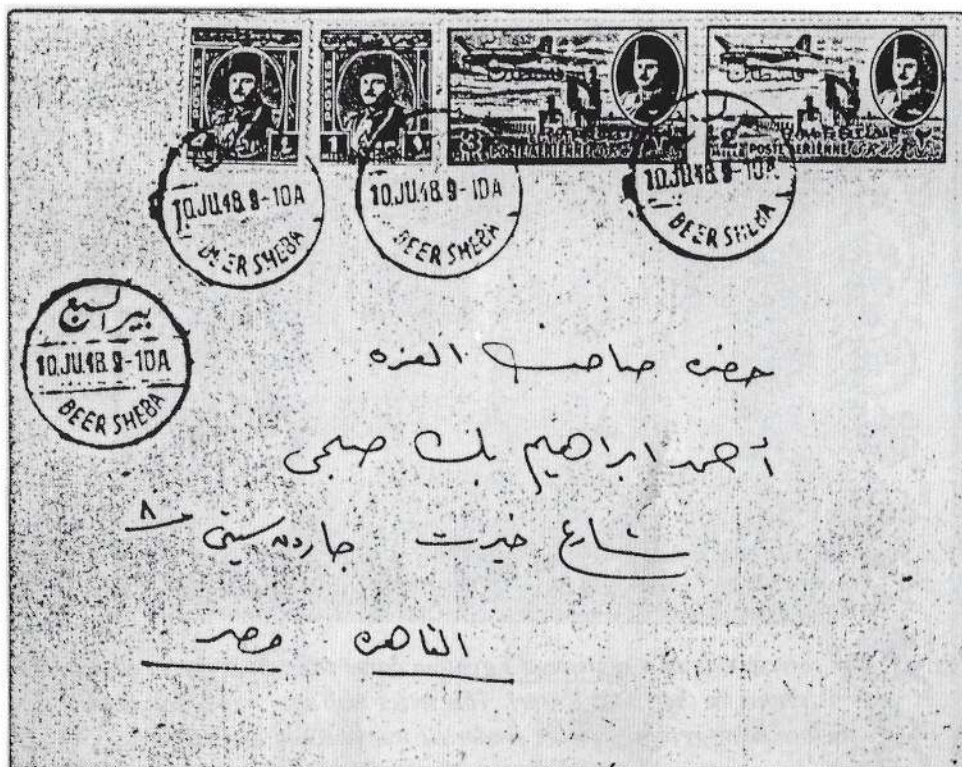 فلسطين
فلسطين
3 POSTE AERIENNE
MILLS POSTE AERIENNE
10.JU.48.9-10A
BEER SHEBA
10.JU.48.9-10A
BEER SHEBA
10.JU.48.9-10A
BEER SHEBA
بير السبع
10.JU.48.9-10A
BEER SHEBA
حضرة صاحب العزه
أحمد ابراهيم بك
٨ شارع خيرت جاردن سيتى
القاهرة مصر